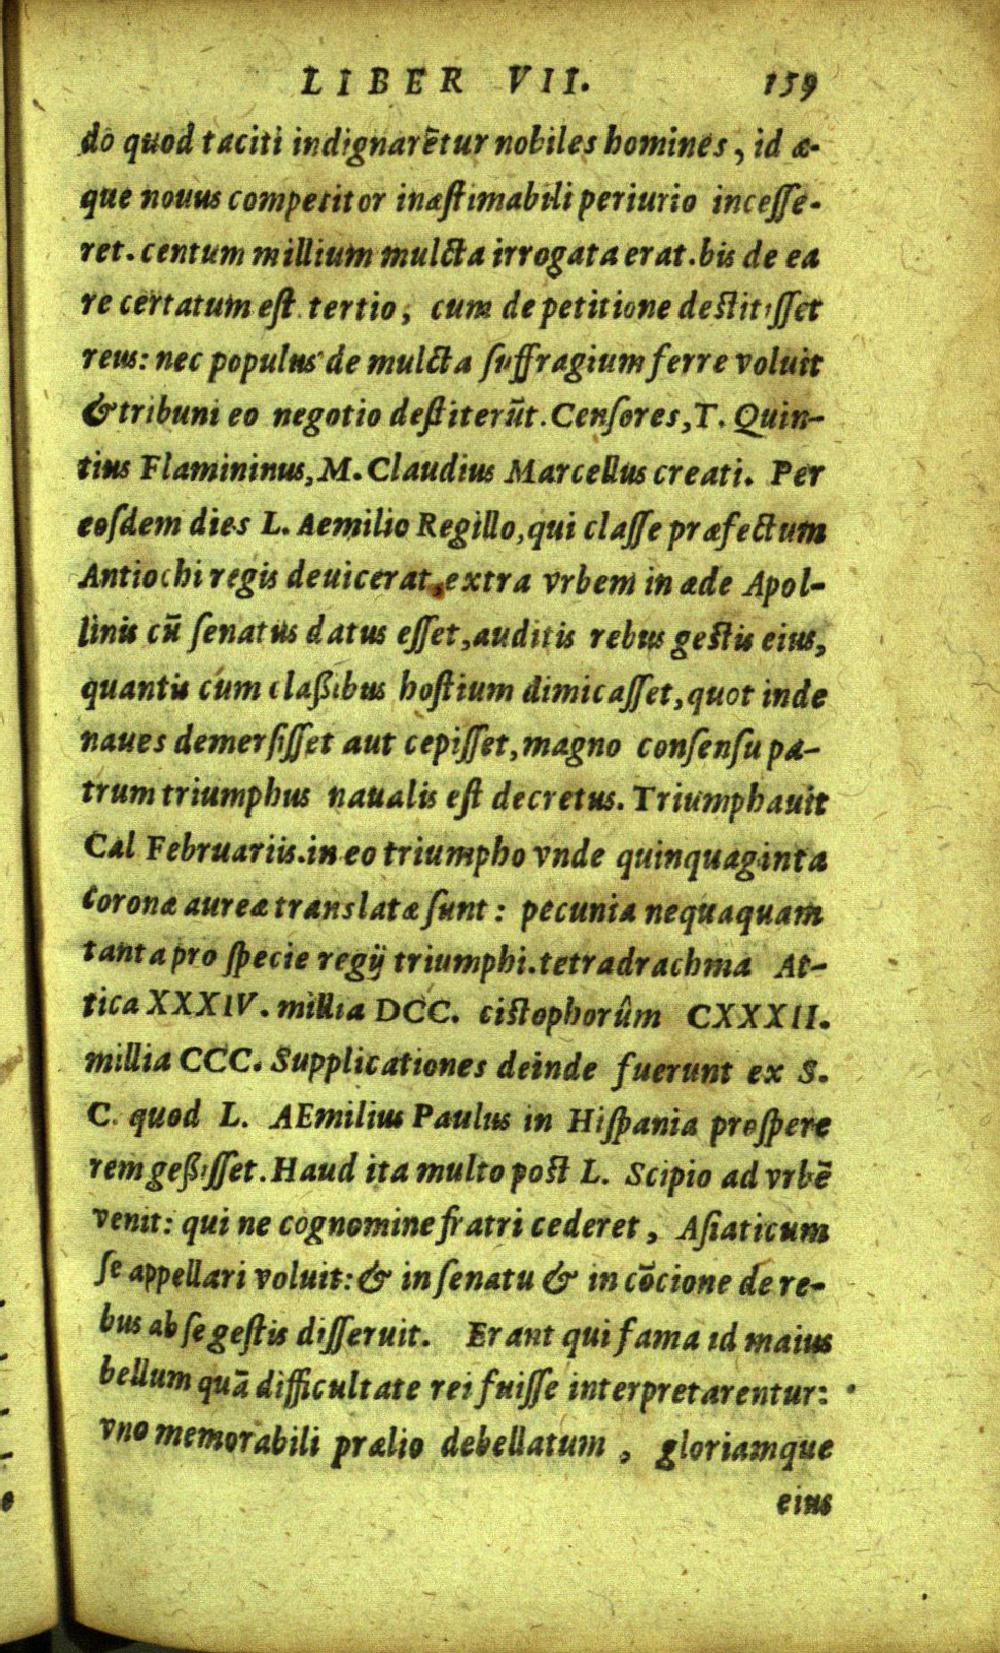 LIBER VII. 159
do quod taciti indignarētur nobiles homines, id æ-
que nouus competitor inæstimabili periurio incesse-
ret. centum millium mulcta irrogata erat. bis de ea
re certatum est. tertio, cum de petitione destitisset
reus: nec populus de mulcta suffragium ferre voluit
& tribuni eo negotio destiterūt. Censores, T. Quin-
tius Flamininus, M. Claudius Marcellus creati. Per
eosdem dies L. Aemilio Regillo, qui classe præfectum
Antiochi regis deuicerat, extra vrbem in æde Apol-
linis cū senatus datus esset, auditis rebus gestis eius,
quantis cum claßibus hostium dimicasset, quot inde
naues demersisset aut cepisset, magno consensu pa-
trum triumphus naualis est decretus. Triumphauit
Cal Februariis. in eo triumpho vnde quinquaginta
coronæ aureæ translatæ sunt: pecunia nequaquam
tanta pro specie regij triumphi. tetradrachma At-
tica XXXIV. millia DCC. cistophorûm CXXXII.
millia CCC. Supplicationes deinde fuerunt ex S.
C. quod L. AEmilius Paulus in Hispania prospere
rem geßisset. Haud ita multo post L. Scipio ad vrbē
venit: qui ne cognomine fratri cederet, Asiaticum
se appellari voluit: & in senatu & in cōcione de re-
bus ab se gestis disseruit. Erant qui fama id maius
bellum quā difficultate rei fuisse interpretarentur:
vno memorabili prælio debellatum, gloriamque
eius